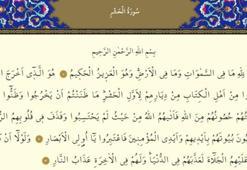 سُورَةُ الْحَشْرِ
بِسْمِ اللهِ الرَّحْمٰنِ الرَّحِيمِ
لِلّٰهِ مَا فِي السَّمٰوَاتِ وَمَا فِي الْاَرْضِ وَهُوَ الْعَزِيزُ الْحَكِيمُ هُوَ الَّذِي اَخْرَجَ
مِنْ اَهْلِ الْكِتَابِ مِنْ دِيَارِهِمْ لِاَوَّلِ الْحَشْرِ مَا ظَنَنْتُمْ اَنْ يَخْرُجُوا وَظَنُّوا
حُصُونُهُمْ مِنَ اللهِ فَاَتٰيهُمُ اللهُ مِنْ حَيْثُ لَمْ يَحْتَسِبُوا وَقَذَفَ فِي قُلُوبِهِمُ
بُيُوتَهُمْ بِاَيْدِيهِمْ وَاَيْدِي الْمُؤْمِنِينَ فَاعْتَبِرُوا يَا اُولِي الْاَبْصَارِ وَلَوْلَا اَنْ
عَلَيْهِمُ الْجَلَاءَ لَعَذَّبَهُمْ فِي الدُّنْيَا وَلَهُمْ فِي الْاٰخِرَةِ عَذَابُ النَّارِ